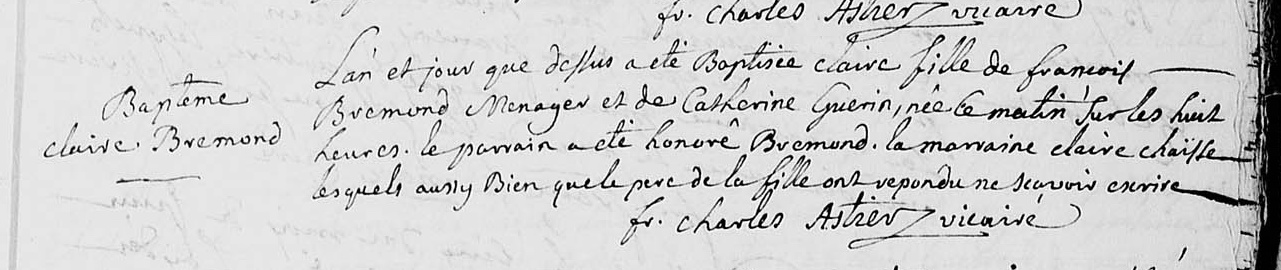 fr. charles Astier vicaire
Baptême
claire Bremond
L'an et jour que dessus a eté Baptisée claire fille de francois
Bremond Menager et de Catherine Guerin, née ce matin sur les huit
heures. le parrain a eté honoré Bremond. la marraine claire chaisse
lesquels aussy Bien que le pere de la fille ont repondu ne scavoir escrire
fr. charles Astier vicaire